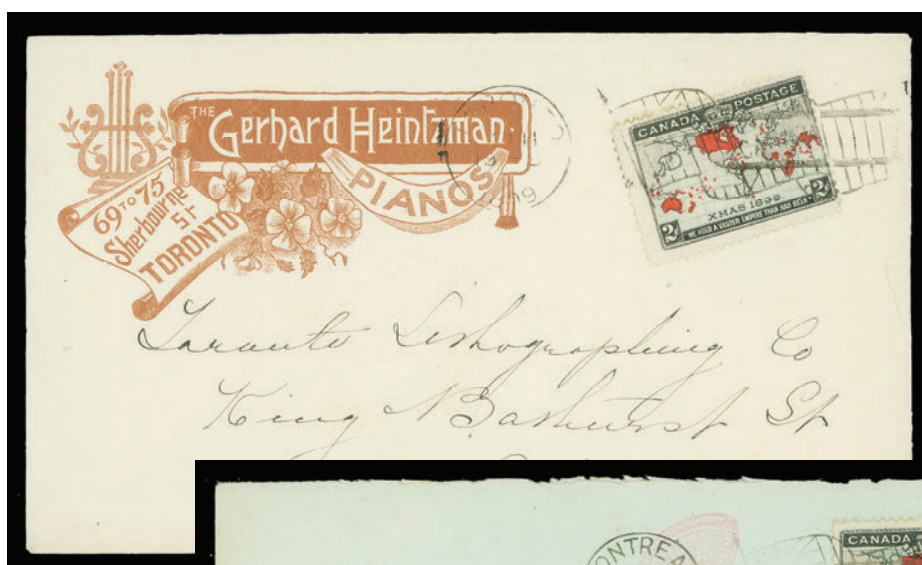 THE Gerhard Heintzman.
PIANOS
69 TO 75
Sherbourne
St
TORONTO
CANADA POSTAGE
XMAS 1898
2c 2c
"WE HOLD A VASTER EMPIRE THAN HAS BEEN"
Toronto Lithographing Co
King & Bathurst St
MONTREA
CANADA